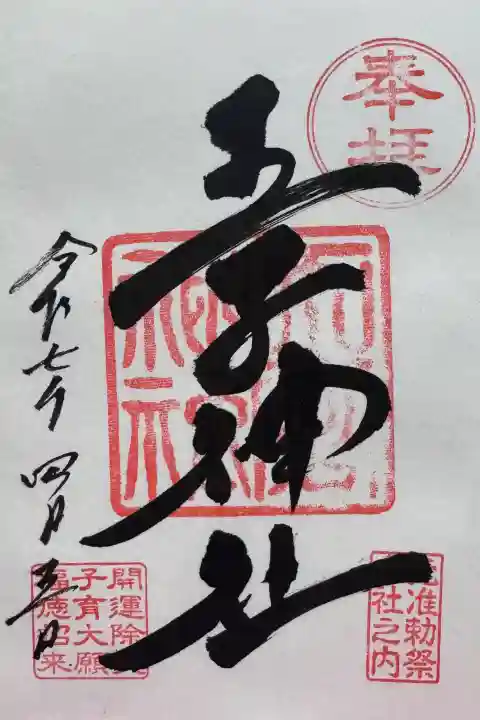 奉拝
王子神社
令和七年 四月五日
准勅祭
社之内
開運除
子育大願
福徳招来